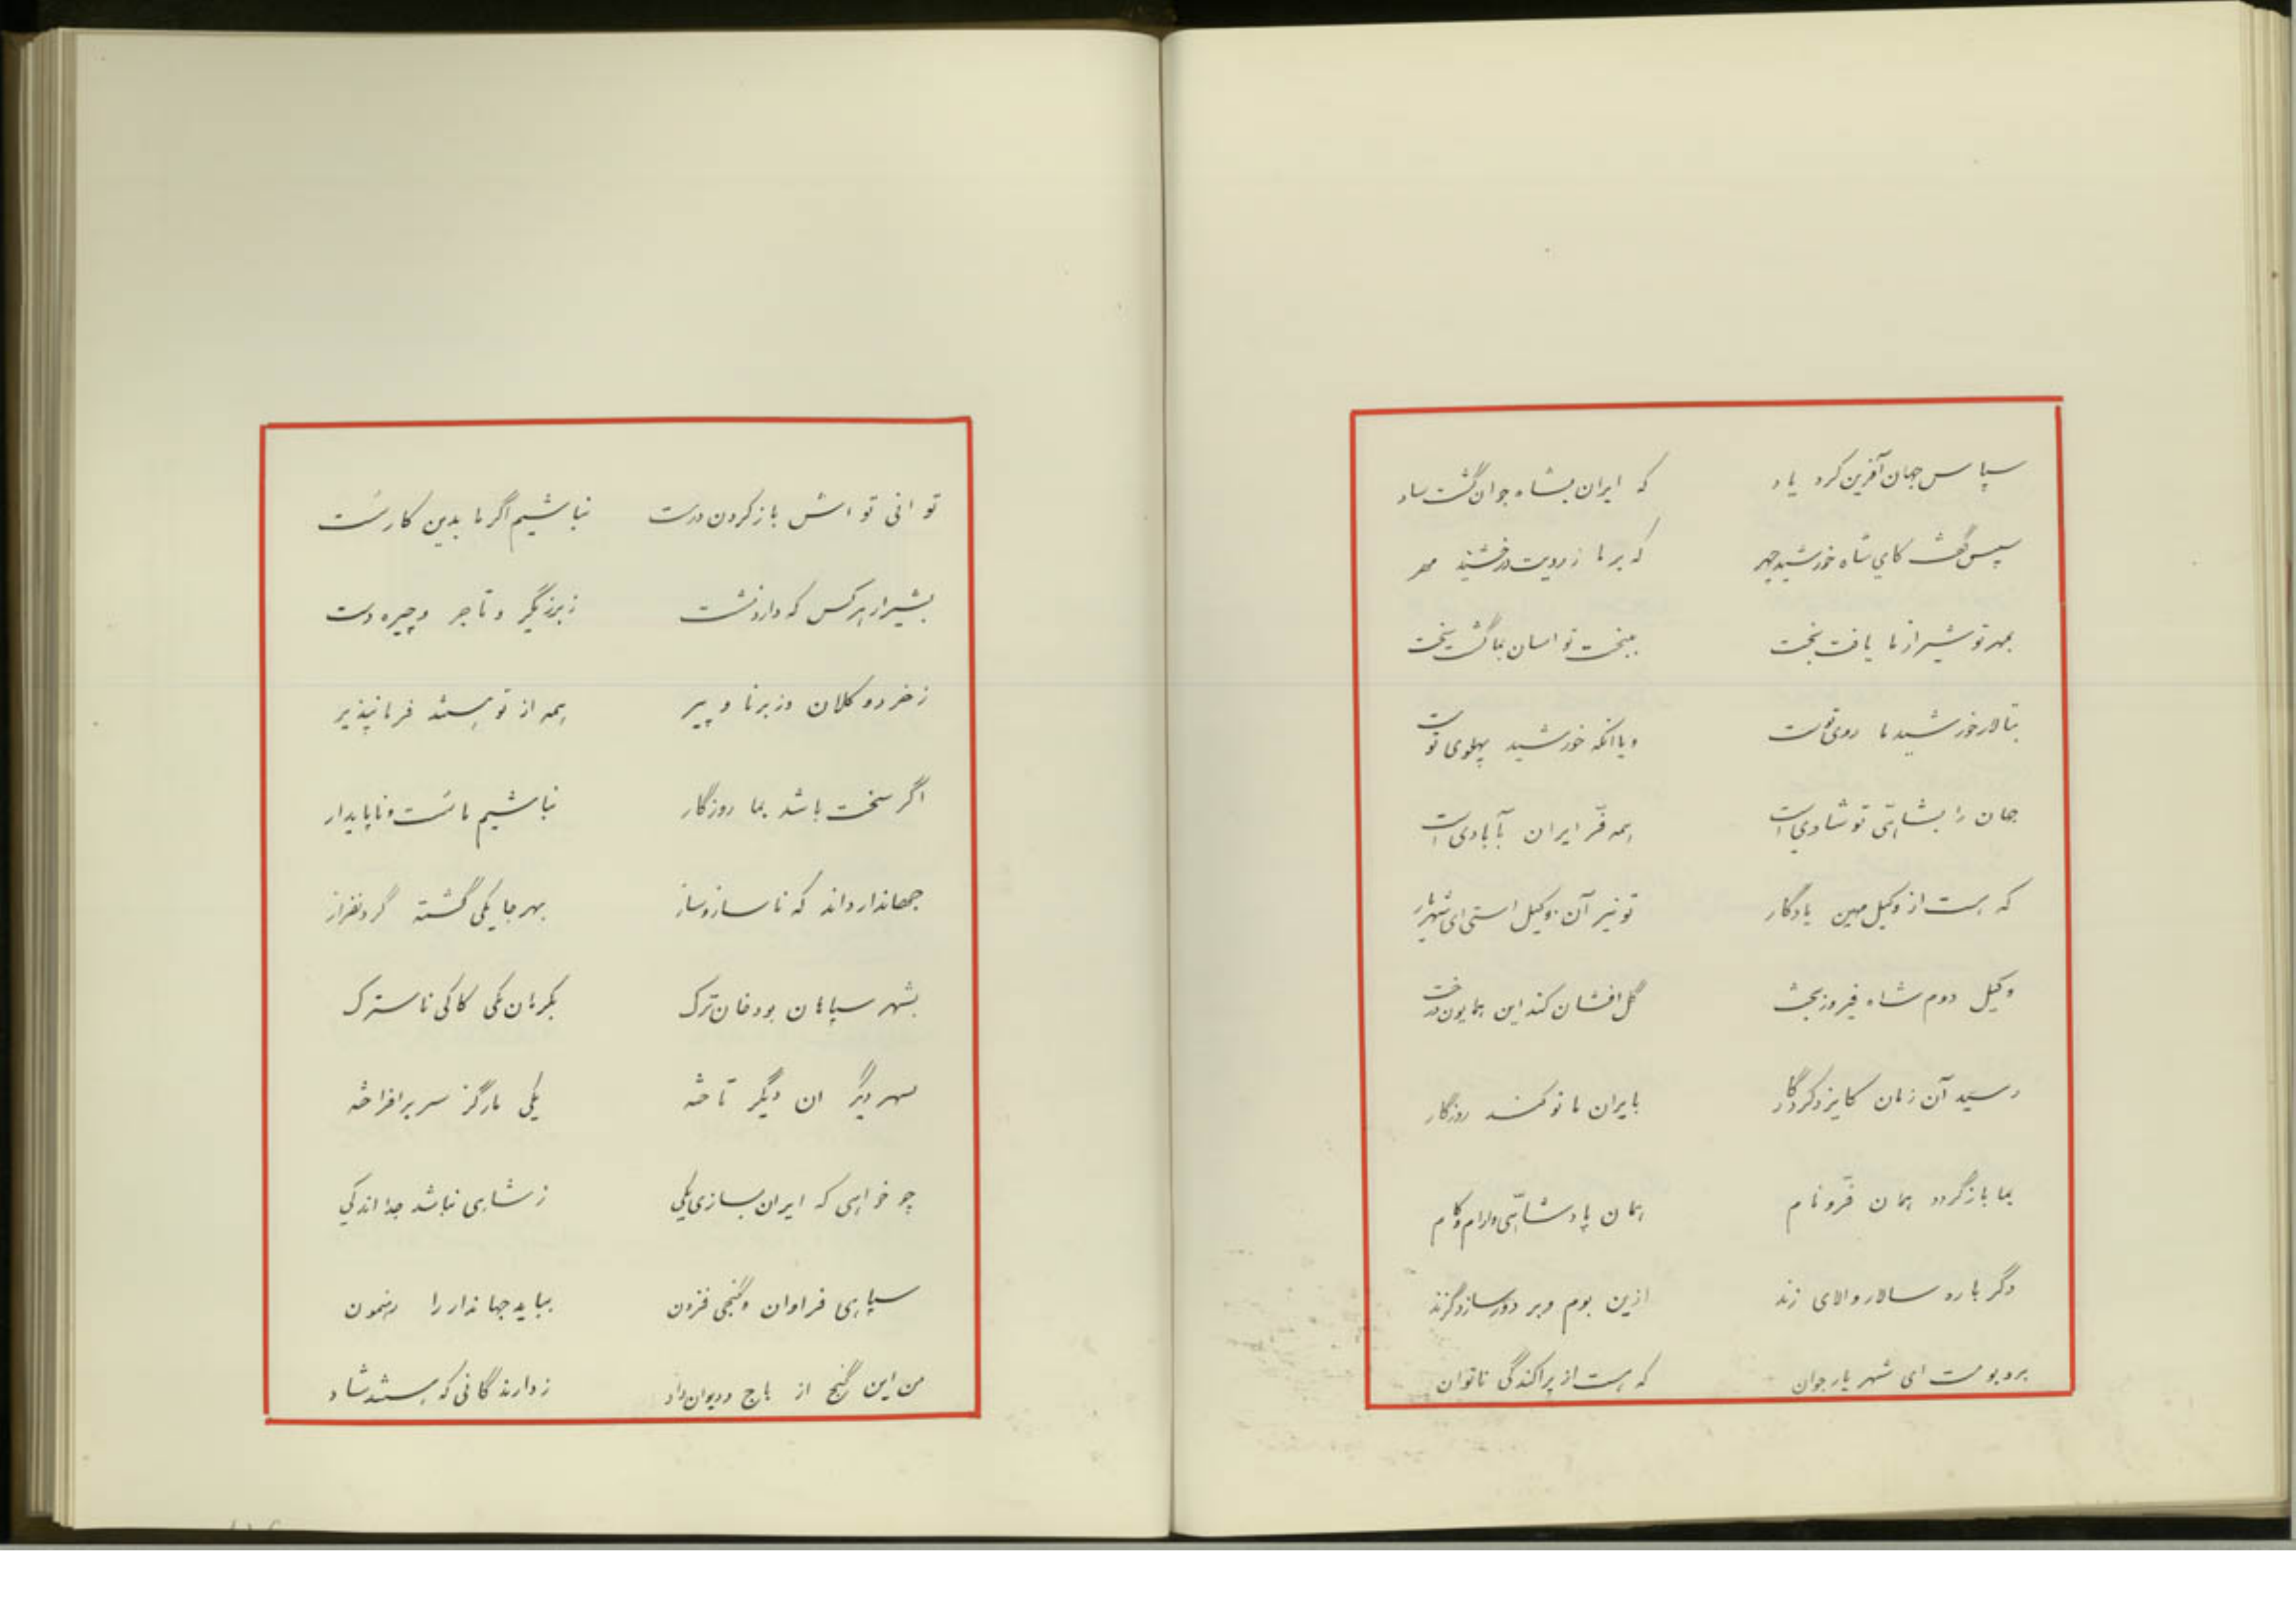 سپاس جهان آفرین کرد یاد که ایران بشاه جوان گشت شاد
سپس گفت کای شاه خورشید چهر که بر ما ز رویت درخشید مهر
بمهر تو شیراز ما یافت بخت ببخت تو اسان بما گشت سخت
بتالار خورشید ما روی تو است و یا آنکه خورشید پهلوی تو است
جهان را بشاهی تو شادی است همه فر ایران بآبادی است
که هست از وکیل مهین یادگار تو نیز آن وکیل استی ای شهریار
وکیل دوم شاه فیروز بخت گل افشان کند این همایون درخت
رسید آن زمان کایزد کردگار بایران ما نو کند روزگار
بما باز گردد همان فر و نام همان پادشاهی و ارام و کام
دگر باره سالار والای زند ازین بوم و بر دور سازد گزند
بر و بومت ای شهریار جوان که هست از پراکندگی ناتوان
توانی تواش باز کردن درست نباشیم اگر ما بدین کار سست
بشیراز هر کس که دارد نشست ز برزیگر و تاجر و چیره دست
ز خرد و کلان وز برنا و پیر همه از تو هستند فرمانپذیر
اگر سخت باشد بما روزگار نباشیم ما سست و ناپایدار
جهاندار داند که ناساز و ساز بهر جا یکی گشته گردنفراز
بشهر سپاهان بود خان ترک بکرمان یکی کاکی ناسترک
بهر دیگر ان دیگر تاخته یکی مارگز سر برافراخته
چو خواهی که ایران بسازی یکی ز شاهی نباشد جدا اندکی
سپاهی فراوان و گنجی فزون بباید جهاندار را رهنمون
من این گنج از باج و دیوان داد ز دارندگانی که هستند شاد